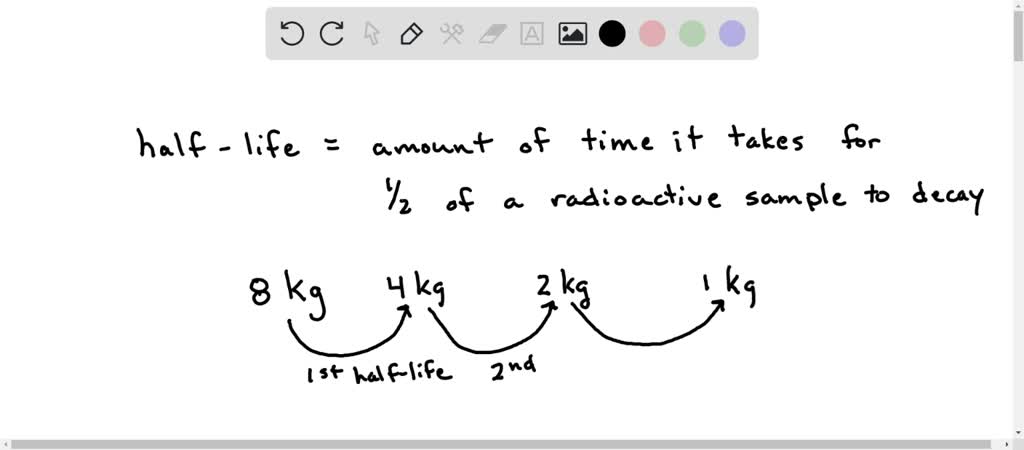 half-life = amount of time it takes for
1/2 of a radioactive sample to decay
8 kg 4 kg 2 kg 1 kg
1st half-life 2nd